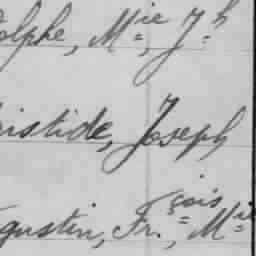 olphe, Mie, Jh
ristide, Joseph
gustin, Frçois, Mie